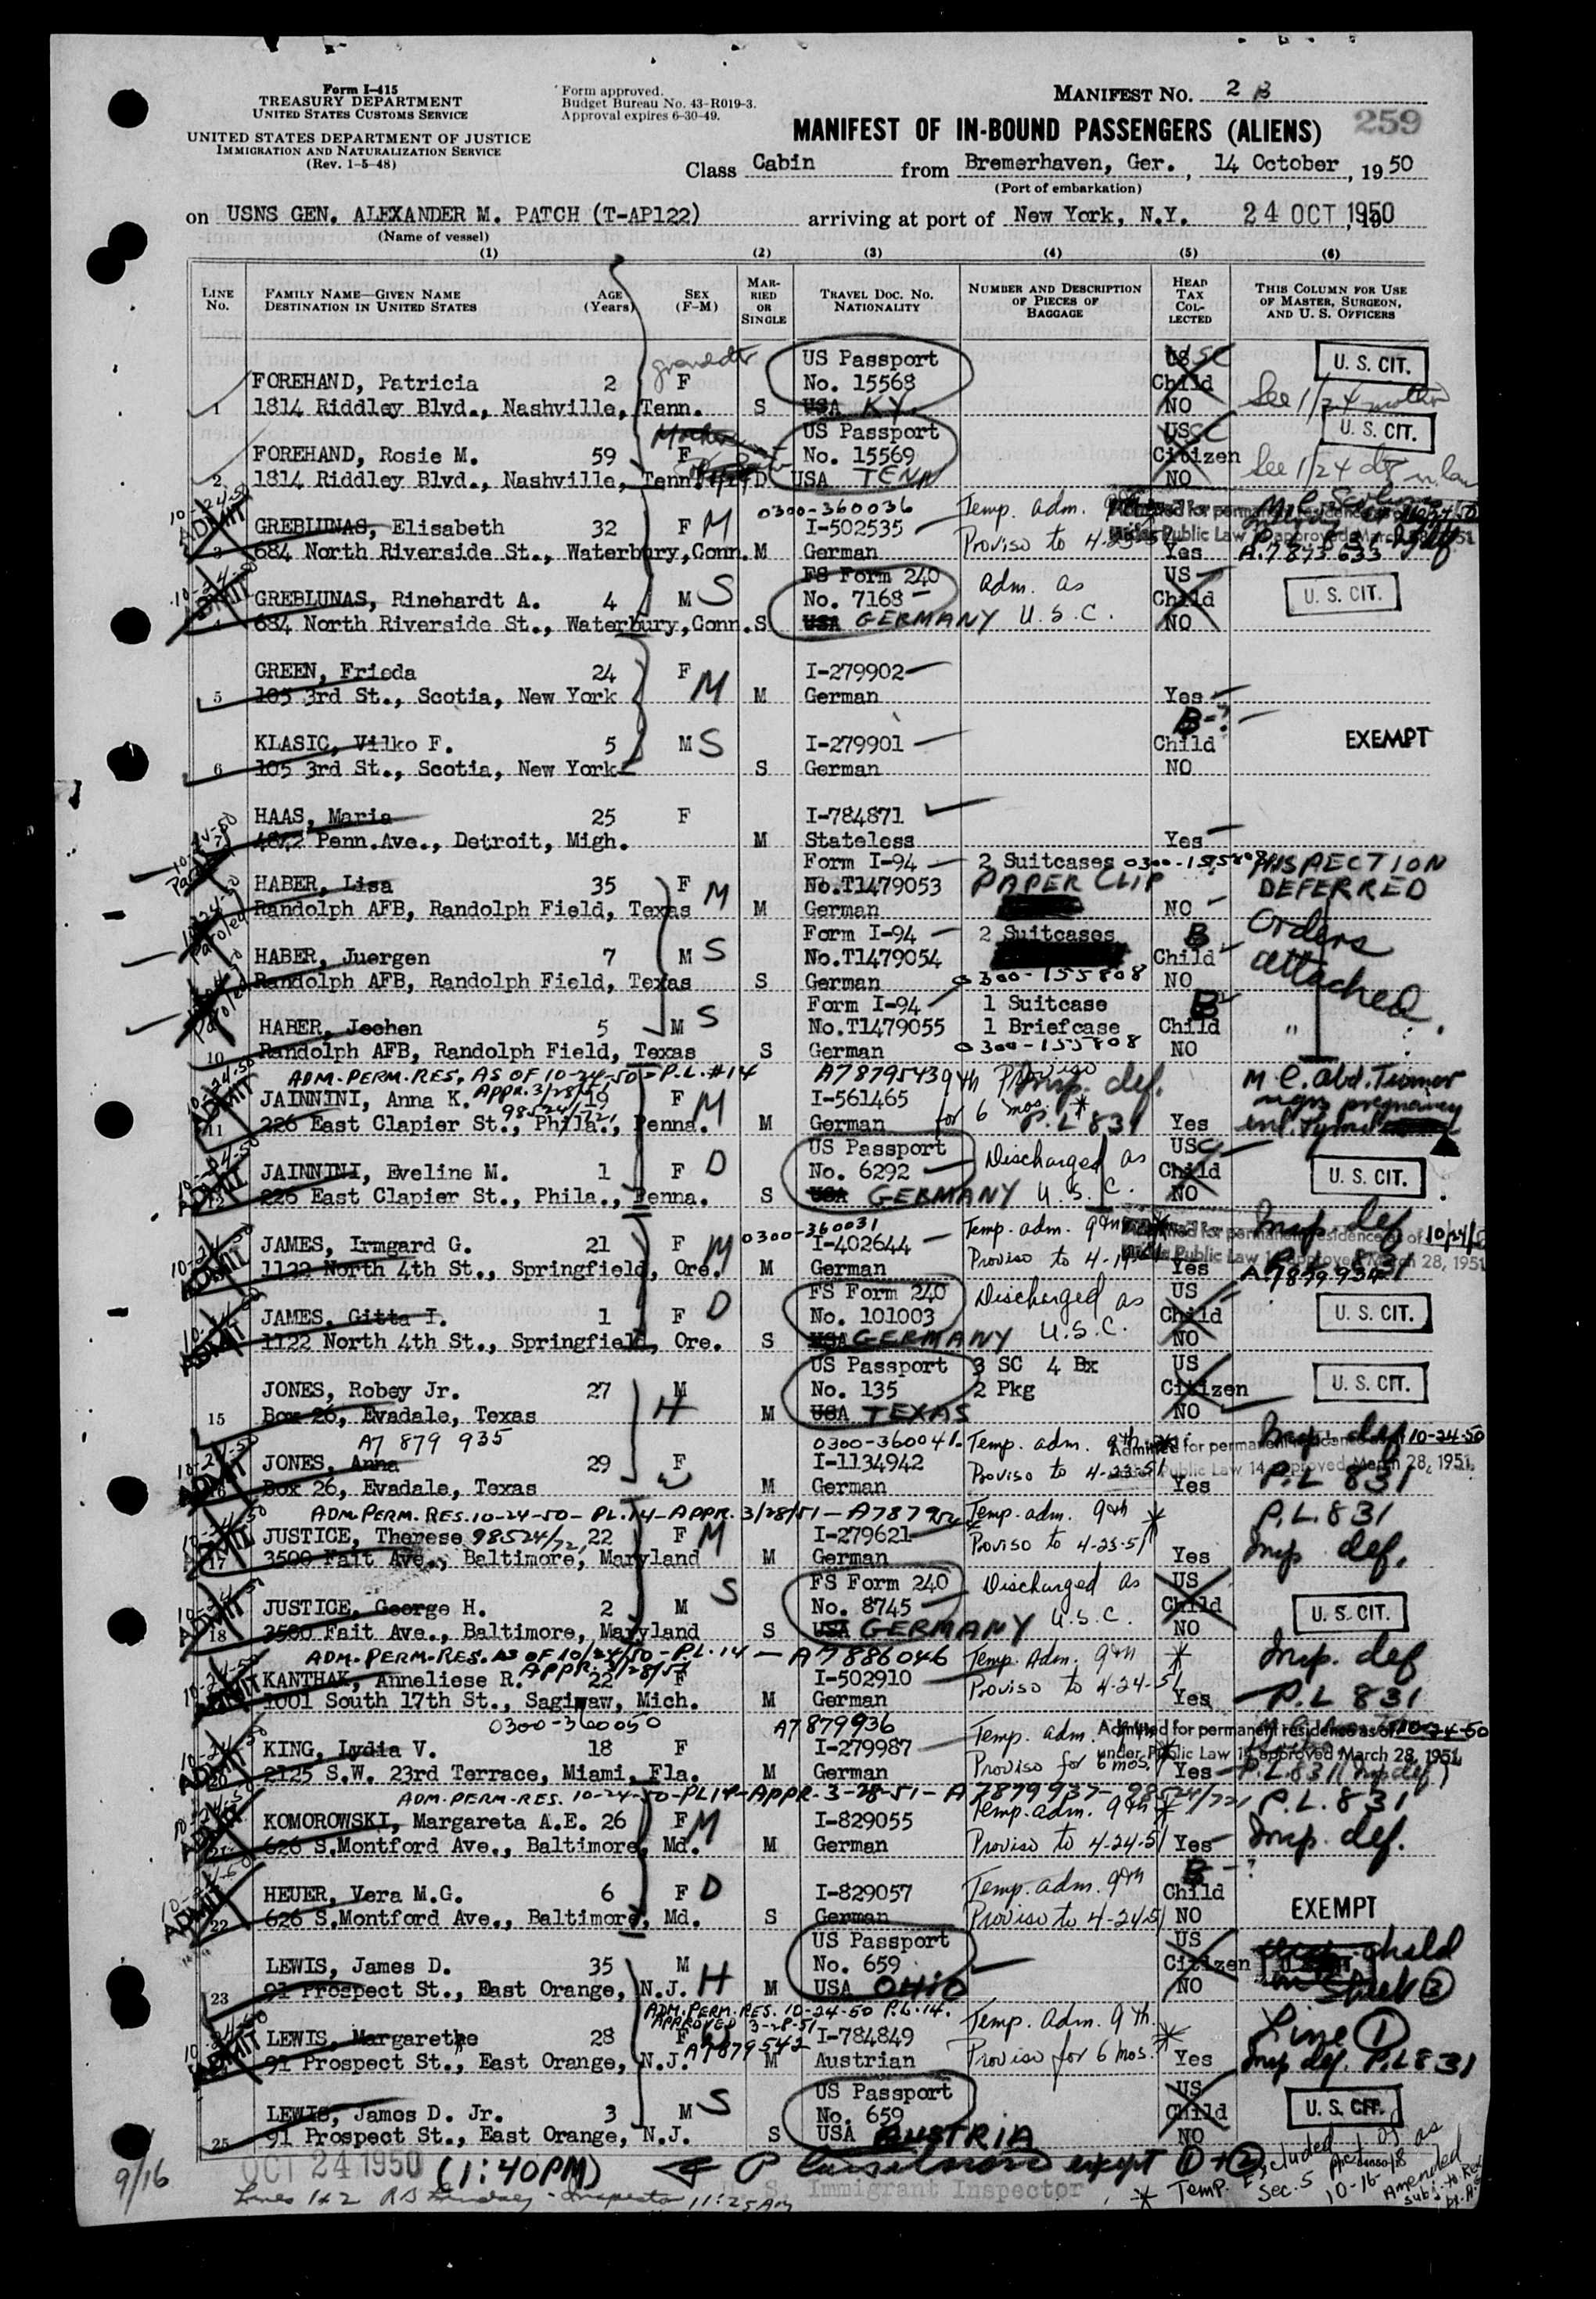 Form I-415
TREASURY DEPARTMENT
UNITED STATES CUSTOMS SERVICE
UNITED STATES DEPARTMENT OF JUSTICE
IMMIGRATION AND NATURALIZATION SERVICE
(Rev. 1-5-48)
Form approved.
Budget Bureau No. 43-R019-3.
Approval expires 6-30-49.
MANIFEST NO. 2 B
259
MANIFEST OF IN-BOUND PASSENGERS (ALIENS)
Class Cabin from Bremerhaven, Ger., 14 October, 1950
(Port of embarkation)
on USNS GEN. ALEXANDER M. PATCH (T-AP122) arriving at port of New York, N.Y. 24 OCT 1950, 19
(Name of vessel)
(1) (2) (3) (4) (5) (6)
LINE NO. FAMILY NAME—GIVEN NAME DESTINATION IN UNITED STATES AGE (Years) SEX (F-M) MARRIED OR SINGLE TRAVEL DOC. NO. NATIONALITY NUMBER AND DESCRIPTION OF PIECES OF BAGGAGE HEAD TAX COLLECTED THIS COLUMN FOR USE OF MASTER, SURGEON, AND U. S. OFFICERS
US Passport USC U. S. CIT.
FOREHAND, Patricia 2 F No. 15568 Child
1 1814 Riddley Blvd., Nashville, Tenn. S USA KY. NO See 1/24 mother
US Passport USC U. S. CIT.
FOREHAND, Rosie M. 59 F No. 15569 Citizen
2 1814 Riddley Blvd., Nashville, Tenn. D USA TENN NO See 1/24
10-24-50 ADMIT 0300-360036 Temp. adm.
GREBLUNAS, Elisabeth 32 F M I-502535
3 684 North Riverside St., Waterbury, Conn. M German Proviso to Yes A.7873.633
10-24-50 ADMIT FS Form 240 adm. as US
GREBLUNAS, Rinehardt A. 4 M S No. 7168 Child U. S. CIT.
4 684 North Riverside St., Waterbury, Conn. S USA GERMANY U.S.C. NO
GREEN, Frieda 24 F M I-279902
5 105 3rd St., Scotia, New York M German Yes
B-?
KLASIC, Vilko F. 5 M S I-279901 Child EXEMPT
6 105 3rd St., Scotia, New York S German NO
HAAS, Maria 25 F I-784871
4842 Penn.Ave., Detroit, Migh. M Stateless Yes
Form I-94 2 Suitcases 0300-155808 INSPECTION
HABER, Lisa 35 F M No.T1479053 PAPER CLIP DEFERRED
Randolph AFB, Randolph Field, Texas M German NO
Form I-94 2 Suitcases B Orders
HABER, Juergen 7 M S No.T1479054 Child attached
Randolph AFB, Randolph Field, Texas S German 0300-155808 NO
Form I-94 1 Suitcase B
HABER, Jochen 5 M S No.T1479055 1 Briefcase Child "
10 Randolph AFB, Randolph Field, Texas S German 0300-155808 NO
ADM. PERM. RES. AS OF 10-24-50 - P.L. #14 A7879543 9th Proviso
APPR. 3/28/51
JAINNINI, Anna K. 19 F M I-561465 for 6 mos. *
11 226 East Clapier St., Phila., Penna. M German P.L 831 Yes
US Passport Discharged as USC
JAINNINI, Eveline M. 1 F D No. 6292 Child U. S. CIT.
12 226 East Clapier St., Phila., Penna. S USA GERMANY U.S.C. NO
10-24-50 ADMIT 0300-360031 Temp. adm. 9th Insp. def 10/24/50
JAMES, Irmgard G. 21 F M I-402644
1122 North 4th St., Springfield, Ore. M German Proviso to Yes P.L 831 A.7879934
FS Form 240 Discharged as US
JAMES, Gitta I. 1 F D No. 101003 Child U. S. CIT.
1122 North 4th St., Springfield, Ore. S USA GERMANY U.S.C. NO
US Passport 3 SC 4 Bx US
JONES, Robey Jr. 27 M H No. 135 2 Pkg Citizen U. S. CIT.
15 Box 26, Evadale, Texas M USA TEXAS NO
A7 879 935 0300-360041 Temp. adm. 9th Insp. def 10-24-50
JONES, Anna 29 F W I-1134942
16 Box 26, Evadale, Texas M German Proviso to 4-23-51 Yes P.L 831
ADM. PERM. RES. 10-24-50 - PL.14 - APPR. 3/28/51 - Temp. adm. 9th * P.L. 831
JUSTICE, Therese 98524/721 22 F M I-279621
17 3500 Fait Ave., Baltimore, Maryland M German Proviso to 4-23-51 Yes Insp. def.
FS Form 240 Discharged as US
JUSTICE, George H. 2 M S No. 8745 Child U. S. CIT.
18 3500 Fait Ave., Baltimore, Maryland S USA GERMANY U.S.C. NO
ADM. PERM. RES. AS OF 10/24/50 - P.L. 14 - A7886046 Temp. Adm. 9th * Insp. def
APPR. 3/28/51
KANTHAK, Anneliese R. 22 F I-502910
1001 South 17th St., Saginaw, Mich. M German Proviso to 4-24-51 Yes P.L 831
0300-360050 A7879936 Temp. adm. Admitted for permanent residence as of 10-24-50
KING, Lydia V. 18 F I-279987 under Public Law 14 approved March 28, 1951
20 2125 S.W. 23rd Terrace, Miami, Fla. M German Proviso for 6 mos. Yes P.L.831 (Insp def)
ADM. PERM. RES. 10-24-50 - PL14 - APPR. 3-28-51 - A7879937 - 98524/721 P.L. 831
KOMOROWSKI, Margareta A.E. 26 F M I-829055 Temp. adm. 9th *
21 626 S.Montford Ave., Baltimore, Md. M German Proviso to 4-24-51 Yes Insp. def.
B-?
HEUER, Vera M.G. 6 F D I-829057 Temp. adm. 9th Child EXEMPT
22 626 S.Montford Ave., Baltimore, Md. S German Proviso to 4-24-51 NO
US Passport US
LEWIS, James D. 35 M H No. 659 Citizen child
23 91 Prospect St., East Orange, N.J. M USA OHIO NO Sheet 3
ADM. PERM. RES. 10-24-50 P.L. 14.
APPROVED 3-28-51 Temp. Adm. 9th * Line 1
LEWIS, Margarethe 28 F W I-784849
91 Prospect St., East Orange, N.J. A7879542 M Austrian Proviso for 6 mos. Yes Insp def. P.L 831
US Passport US
LEWIS, James D. Jr. 3 M S No. 659 Child U. S. CIT.
25 91 Prospect St., East Orange, N.J. S USA AUSTRIA NO
OCT 24 1950 (1:40PM) except 1 + 2
9/16
Lines 1 & 2 Inspector 11:25 AM
U. S. Immigrant Inspector
* Temp. Excluded
Sec. 5 Act of
10-16-18 as
Amended